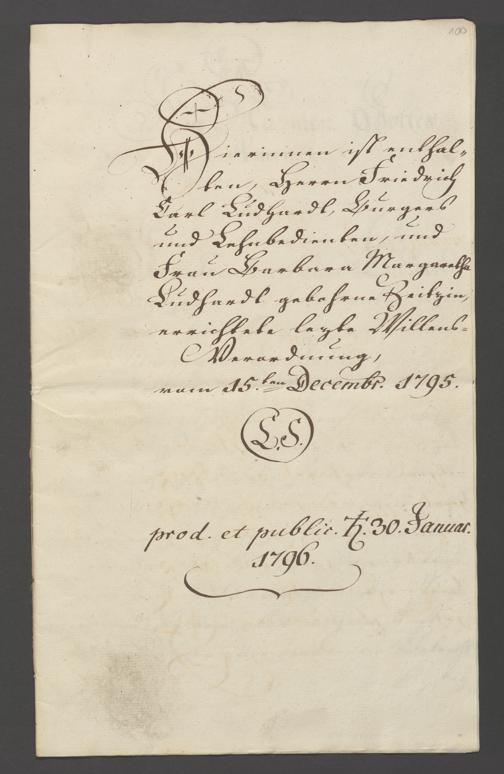 100
Hierinnen ist enthal-
ten, Herrn Friedrich
Carl Ludhardt, Burgers
und Lehnbedienten, und
Frau Barbara Margaretha
Ludhardt gebohrne Zeitzin,
errichtete lezte Willens-
Verordnung,
vom 15.ten Decembr. 1795.
L.S.
prod. et public. 30. Januar.
1796.